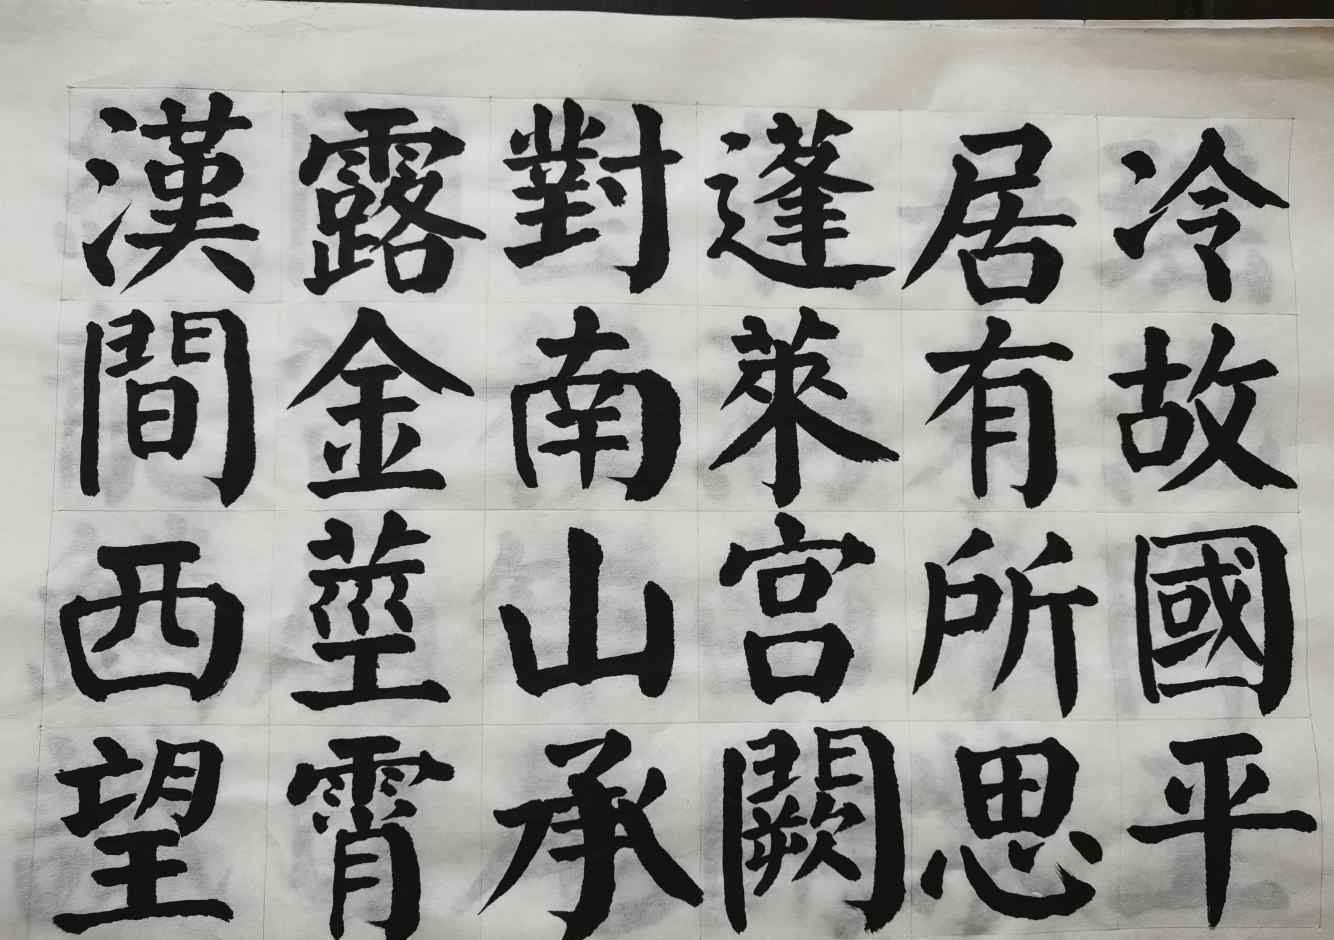 冷故國平
居有所思
蓬萊宮闕
對南山承
露金莖霄
漢間西望